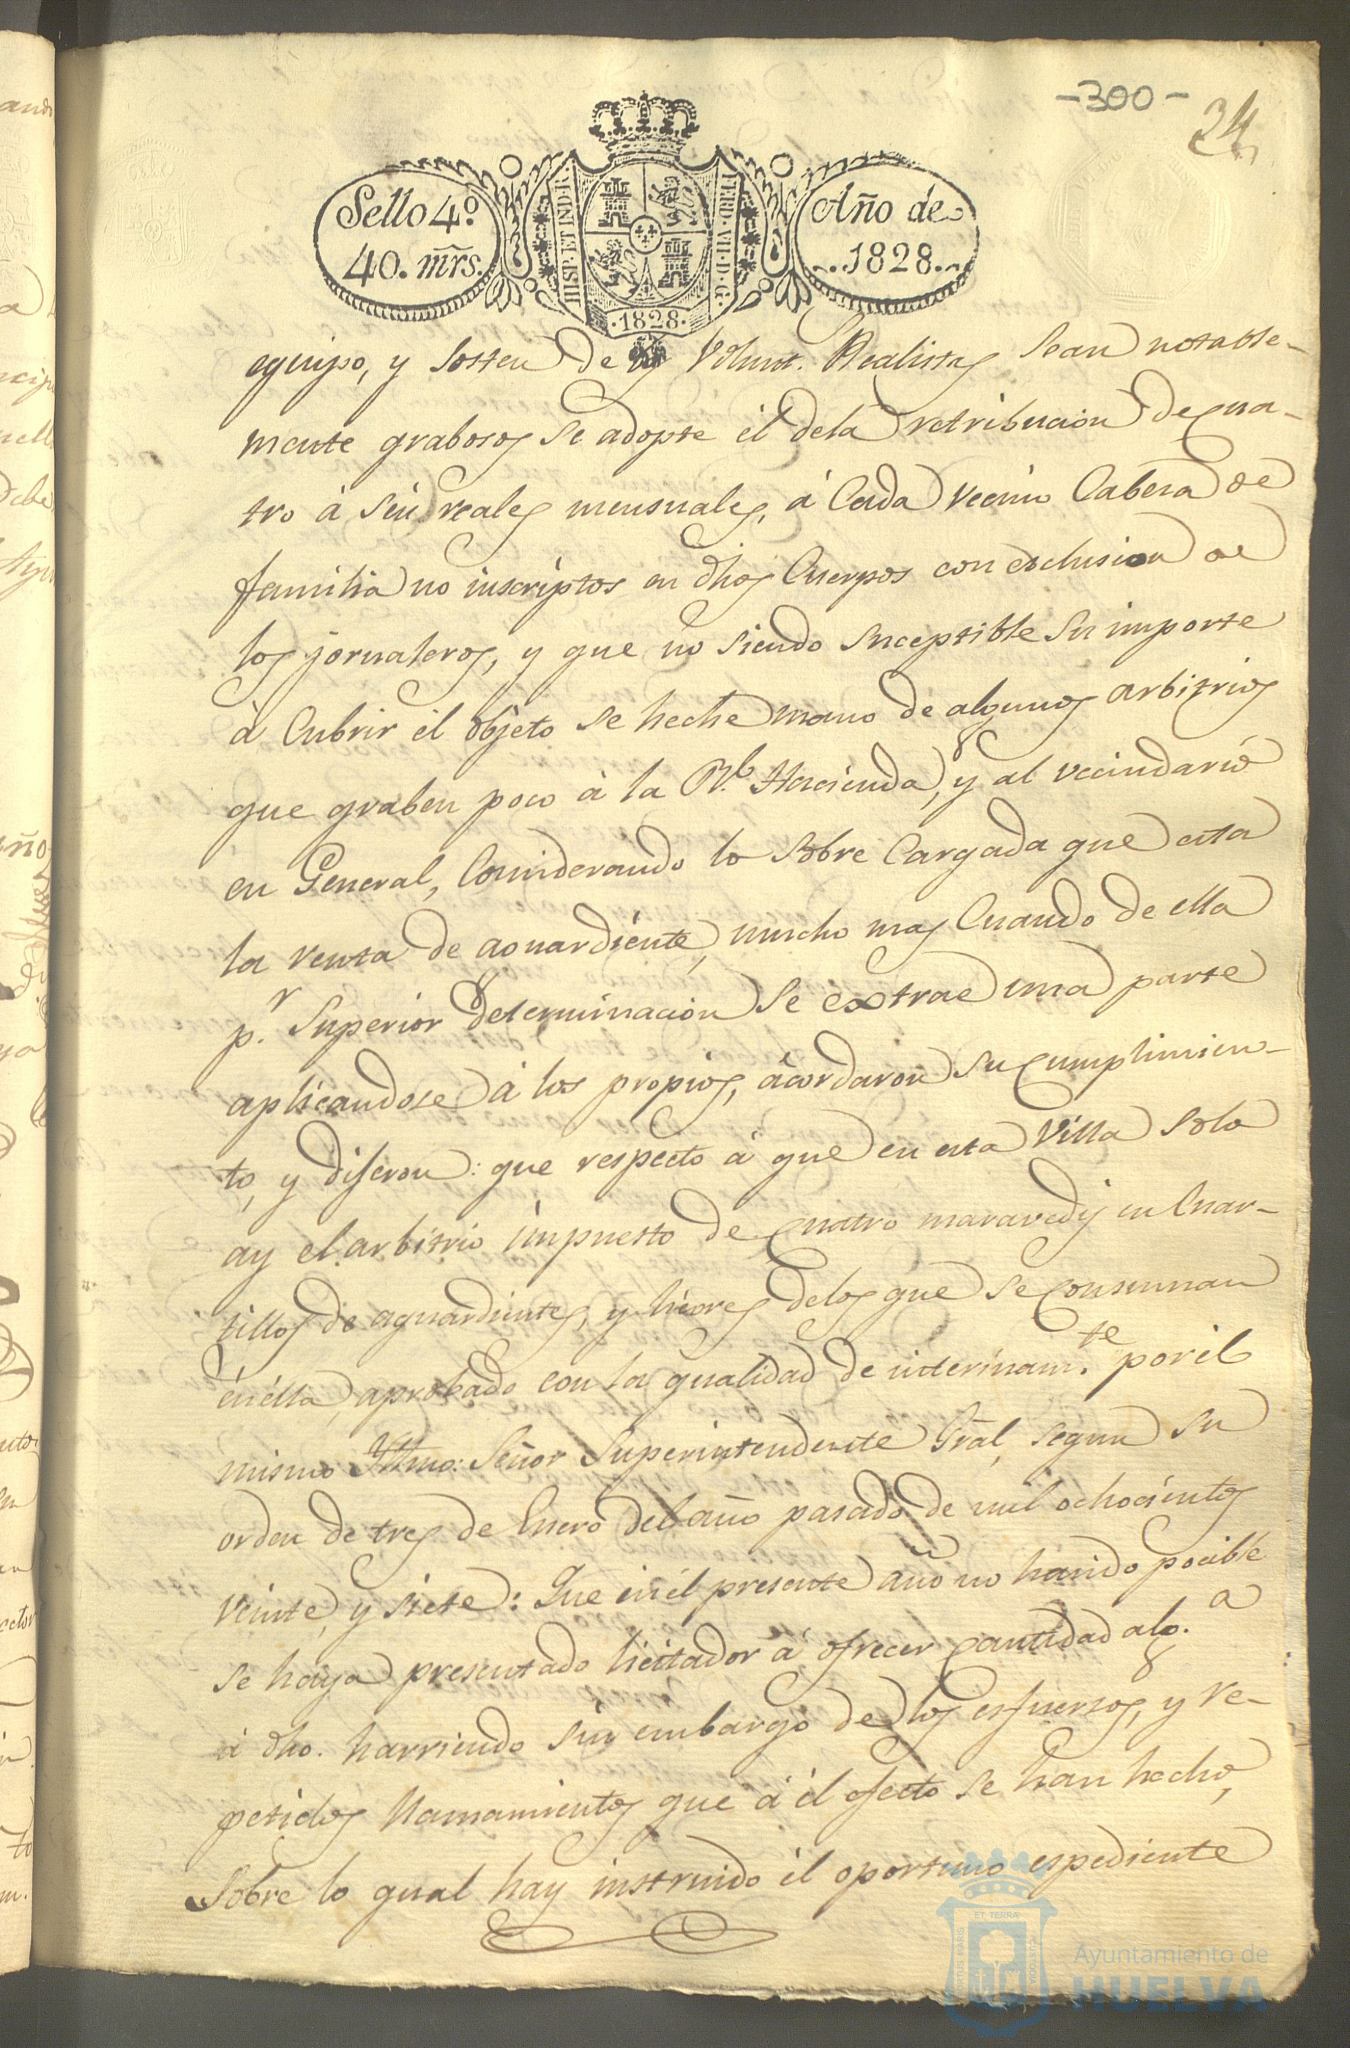 -300-
24
Sello 4º
40. mrs.
HISP. ET IND. R.
FERD. VII. D. G.
·1828·
Año de
1828.
equipo, y sosten de los Volunt. Realistas sean notable-
mente grabosos se adopte él dela retribucion de cua-
tro á seis reales mensuales, á Cada vecino Cabesa de
familia no inscriptos en dhos Cuerpos con exclusion de
los jornaleros, y que no siendo suceptible su importe
á Cubrir él objeto se heche mano de algunos arbitrios
que graben poco á la Rl. Hacienda, y al vecindario
en General, Considerando lo sobre Cargada que esta
la venta de aguardiente, mucho mas Cuando de ella
pr. Superior determinacion se extrae una parte
aplicandose á los propios, ácordaron su cumplimien-
to, y dijeron: que respecto á que en esta Villa solo
ay el arbitrio impuesto de cuatro maravedis en Cuar-
tillos de aguardientes, y licores delos que se consuman
én élla, aprobado con la qualidad de interinamte. por él
mismo Yltmo: Señor Superintendente Gral, segun su
orden de tres de Enero del año pasado de mil ochocientos
veinte, y siete: Que en él presente año no haido pocible
se haya presentado licitador á ofrecer cantidad alga.
á dho. harriendo sin embargo de los esfuersos, y re-
petidos llamamientos que á él efecto se han hecho,
Sobre lo qual hay instruido él oportuno espediente
PORTUS MARIS
ET TERRA
CUSTODIA
Ayuntamiento de
HUELVA